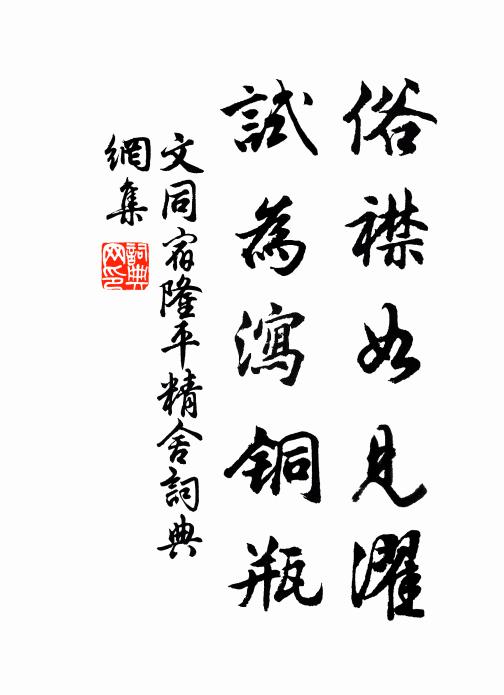 俗襟如見濯
試為瀉銅瓶
文同宿隆平精舍詞典
網集
詞典
网印